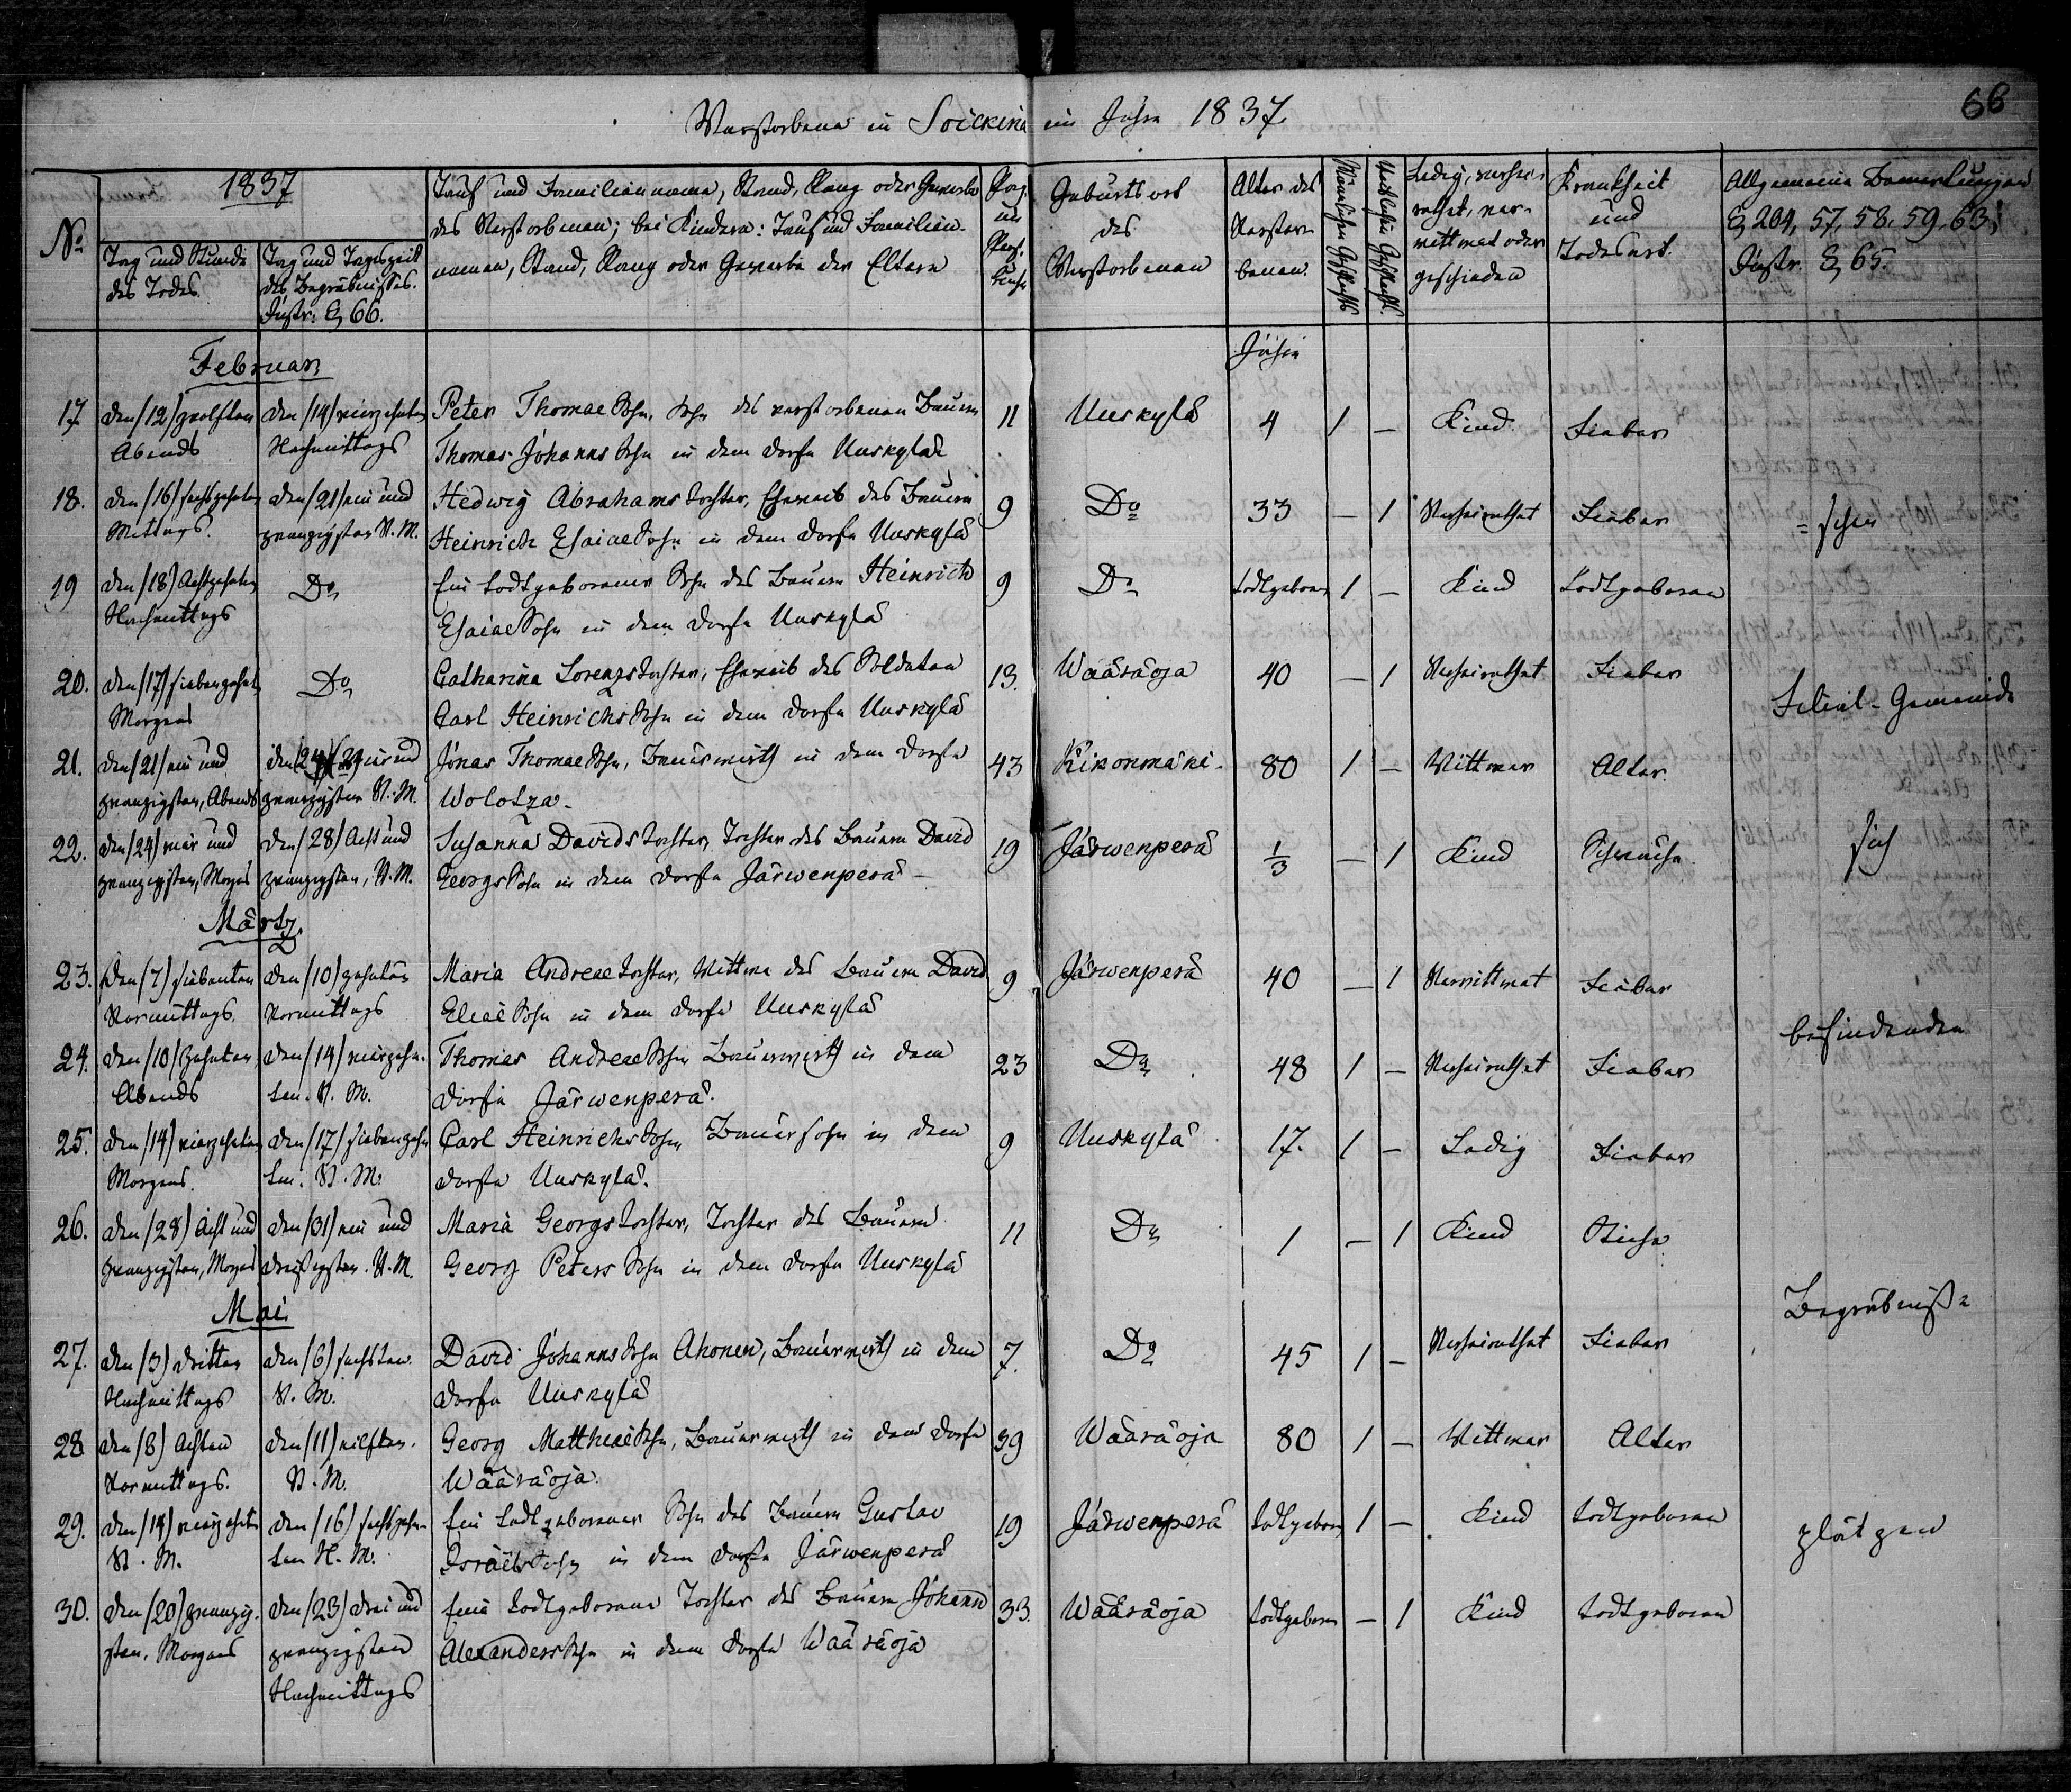 66
Verstorbene in Soickina im Jahre 1837.
No
1837
Tag und Stunde des Todes.
Tag und Tageszeit des Begräbnisses. Instr: § 66.
Tauf und Familienname, Stand, Rang oder Gewerbe
des Verstorbenen; bei Kindern: Tauf und Familien-
namen, Stand, Rang oder Gewerbe der Eltern
Pag. im
Geburtsort des Verstorbenen
Alter des Verstorbenen.
Männlichen Geschlechts
Weiblichen Geschlechts.
Ledig, verheirathet, verwittwet oder geschieden
Krankheit und Todesart.
Allgemeine Bemerkungen
§ 204, 57, 58, 59, 63;
Instr. § 65.
Februar
Jahre
17. den (12) zwölften den (14) vierzehnten Peter Thomae Sohn, Sohn des verstorbenen Bauern 11 Uuskylä 4 1 — Kind Fieber
Abends Nachmittags Thomas Johanns Sohn in dem Dorfe Uuskylä
18. den (16) sechszehnten den (21) ein und Hedwig Abrahams Tochter, Eheweib des Bauern 9 Do 33 — 1 Verheirathet Fieber
Mittags. zwanzigsten N. M. Heinrich Esaiae Sohn in dem Dorfe Uuskylä
19 den (18) Achtzehnten Do Ein todtgeborener Sohn des Bauern Heinrich 9 Do todtgeboren 1 — Kind Todtgeboren
Nachmittags Esaiae Sohn in dem Dorfe Uuskylä
20. den (17) siebenzehnt Do Catharina Lorenzs Tochter, Eheweib des Soldaten 13. Wääräoja 40 — 1 Verheirathet Fieber
Morgens Carl Heinrichs Sohn in dem Dorfe Uuskylä
Filial-Gemeinde
21. den (21) ein und den (24) vier und Jonas Thomae Sohn, Bauerwirth in dem Dorfe 43 Kikonmäki 80 1 — Wittwer Alter.
zwanzigsten, Abends zwanzigsten N. M. Wolotza.
22. den (24) vier und den (28) Acht und Susanna Davids Tochter, Tochter des Bauern David 19 Järwenperä 1/3 — 1 Kind Schwäche
sich
zwanzigsten, Morgens zwanzigsten, N. M. Georgs Sohn in dem Dorfe Järwenperä
Märtz.
23. den (7) siebenten den (10) zehnten Maria Andreae Tochter, Wittwe des Bauern David 9 Järwenperä 40 — 1 Verwittwet Fieber
Vormittags. Vormittags Eliae Sohn in dem Dorfe Uuskylä
befindenden
24. den (10) Zehnten den (14) vierzehn- Thomas Andreae Sohn Bauerwirth in dem 23 Do 48 1 — Verheirathet Fieber
Abends ten. N. M. Dorfe Järwenperä.
25. den (14) vierzehnten den (17) siebenzehn Carl Heinrichs Sohn, Bauersohn in dem 9 Uuskylä 17. 1 — Ledig Fieber
Morgens. ten. N. M. Dorfe Uuskylä.
26. den (28) Acht und den (31) ein und Maria Georgs Tochter, Tochter des Bauern 11 Do 1 — 1 Kind
zwanzigsten, Morgens dreißigsten. N. M. Georg Peters Sohn in dem Dorfe Uuskylä
Begräbniß-
Mai
27. den (3) dritten den (6) sechsten David Johanns Sohn Ahonen, Bauerwirth in dem 7. Do 45 1 — Verheirathet Fieber
Nachmittags N. M. Dorfe Uuskylä
28 den (8) Achten den (11) eilften. Georg Matthiae Sohn, Bauerwirth in dem Dorfe 39 Wääräoja 80 1 — Wittwer Alter
Vormittags. N. M. Wääräoja.
29. den (14) vierzehnten den (16) sechszehn- Ein todtgeborener Sohn des Bauern Gustav 19 Järwenperä todtgeboren 1 — Kind todtgeboren
plätzen
N. M. ten N. M. Israels Sohn in dem Dorfe Järwenperä
30. den (20) zwanzig- den (23) drei und Eine todtgeborene Tochter des Bauern Johann 33. Wääräoja todtgeboren — 1 Kind todtgeboren
sten, Morgens zwanzigsten Alexanders Sohn in dem Dorfe Wääräoja
Nachmittags